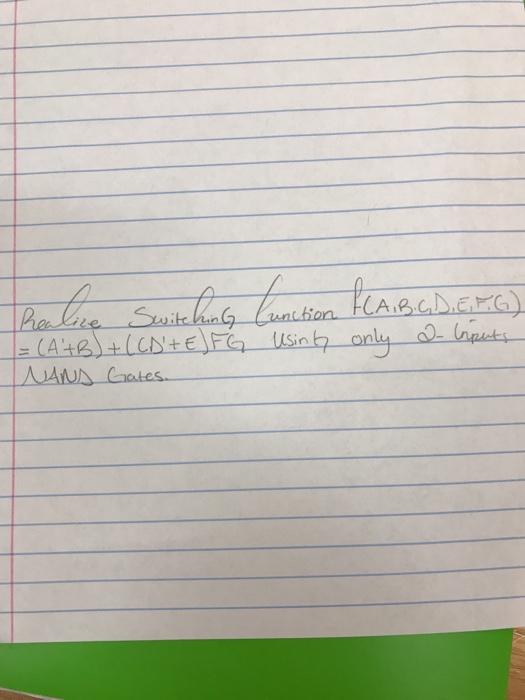 Realize Switching function f(A,B,C,D,E,F,G)
= (A'+B)+(CD'+E)FG Using only 2-Inputs
NAND Gates.